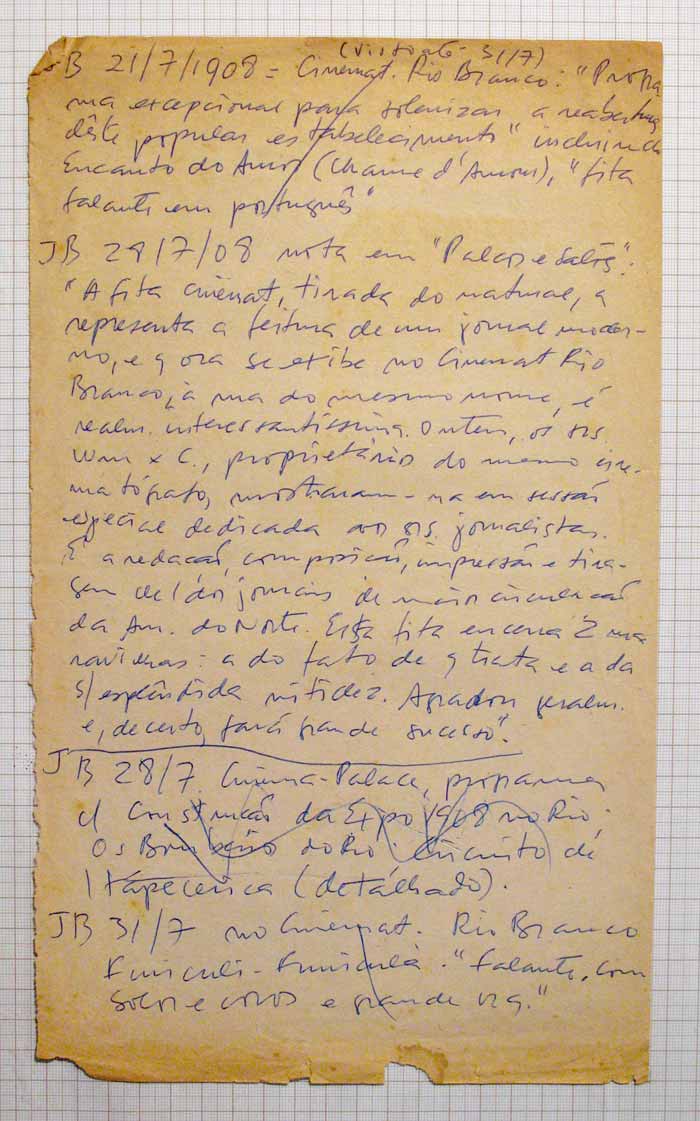 (Visto até 31/7)
JB 21/7/1908 = Cinemat. Rio Branco: "Progra
ma excepcional para solenizar a reabertura
dêste popular estabelecimento" incluindo
Encanto do Amor (Charme d'Amour), "fita
falante em português"
JB 28/7/08 nota em "Palcos e Salões":
"A fita cinemat, tirada do natural, q
representa a feitura de um jornal moder-
no, e q ora se exibe no Cinemat Rio
Branco, à rua do mesmo nome, é
realm. interessantíssima. Ontem, os srs.
Wm & C., proprietários do mesmo cine-
matógrafo, mostraram-na em sessão
especial dedicada aos srs. jornalistas.
É a redação, composição, impressão e tira-
gem de 1 dos jornais de maior circulação
da Am. do Norte. Essa fita encerra 2 ma
ravilhas: a do fato de q trata e a da
s/ esplêndida nitidez. Agradou geralm.
e, decerto, fará grande sucesso".
JB 28/7. Cinema-Palace, programa
c/ Construção da Expo 1908 no Rio.
Os Bombeiros do Rio. Circuito de
Itapecerica (detalhado).
JB 31/7 no Cinemat. Rio Branco
Funiculi-Funiculà. "falante, com
solos e coros e grande orq."